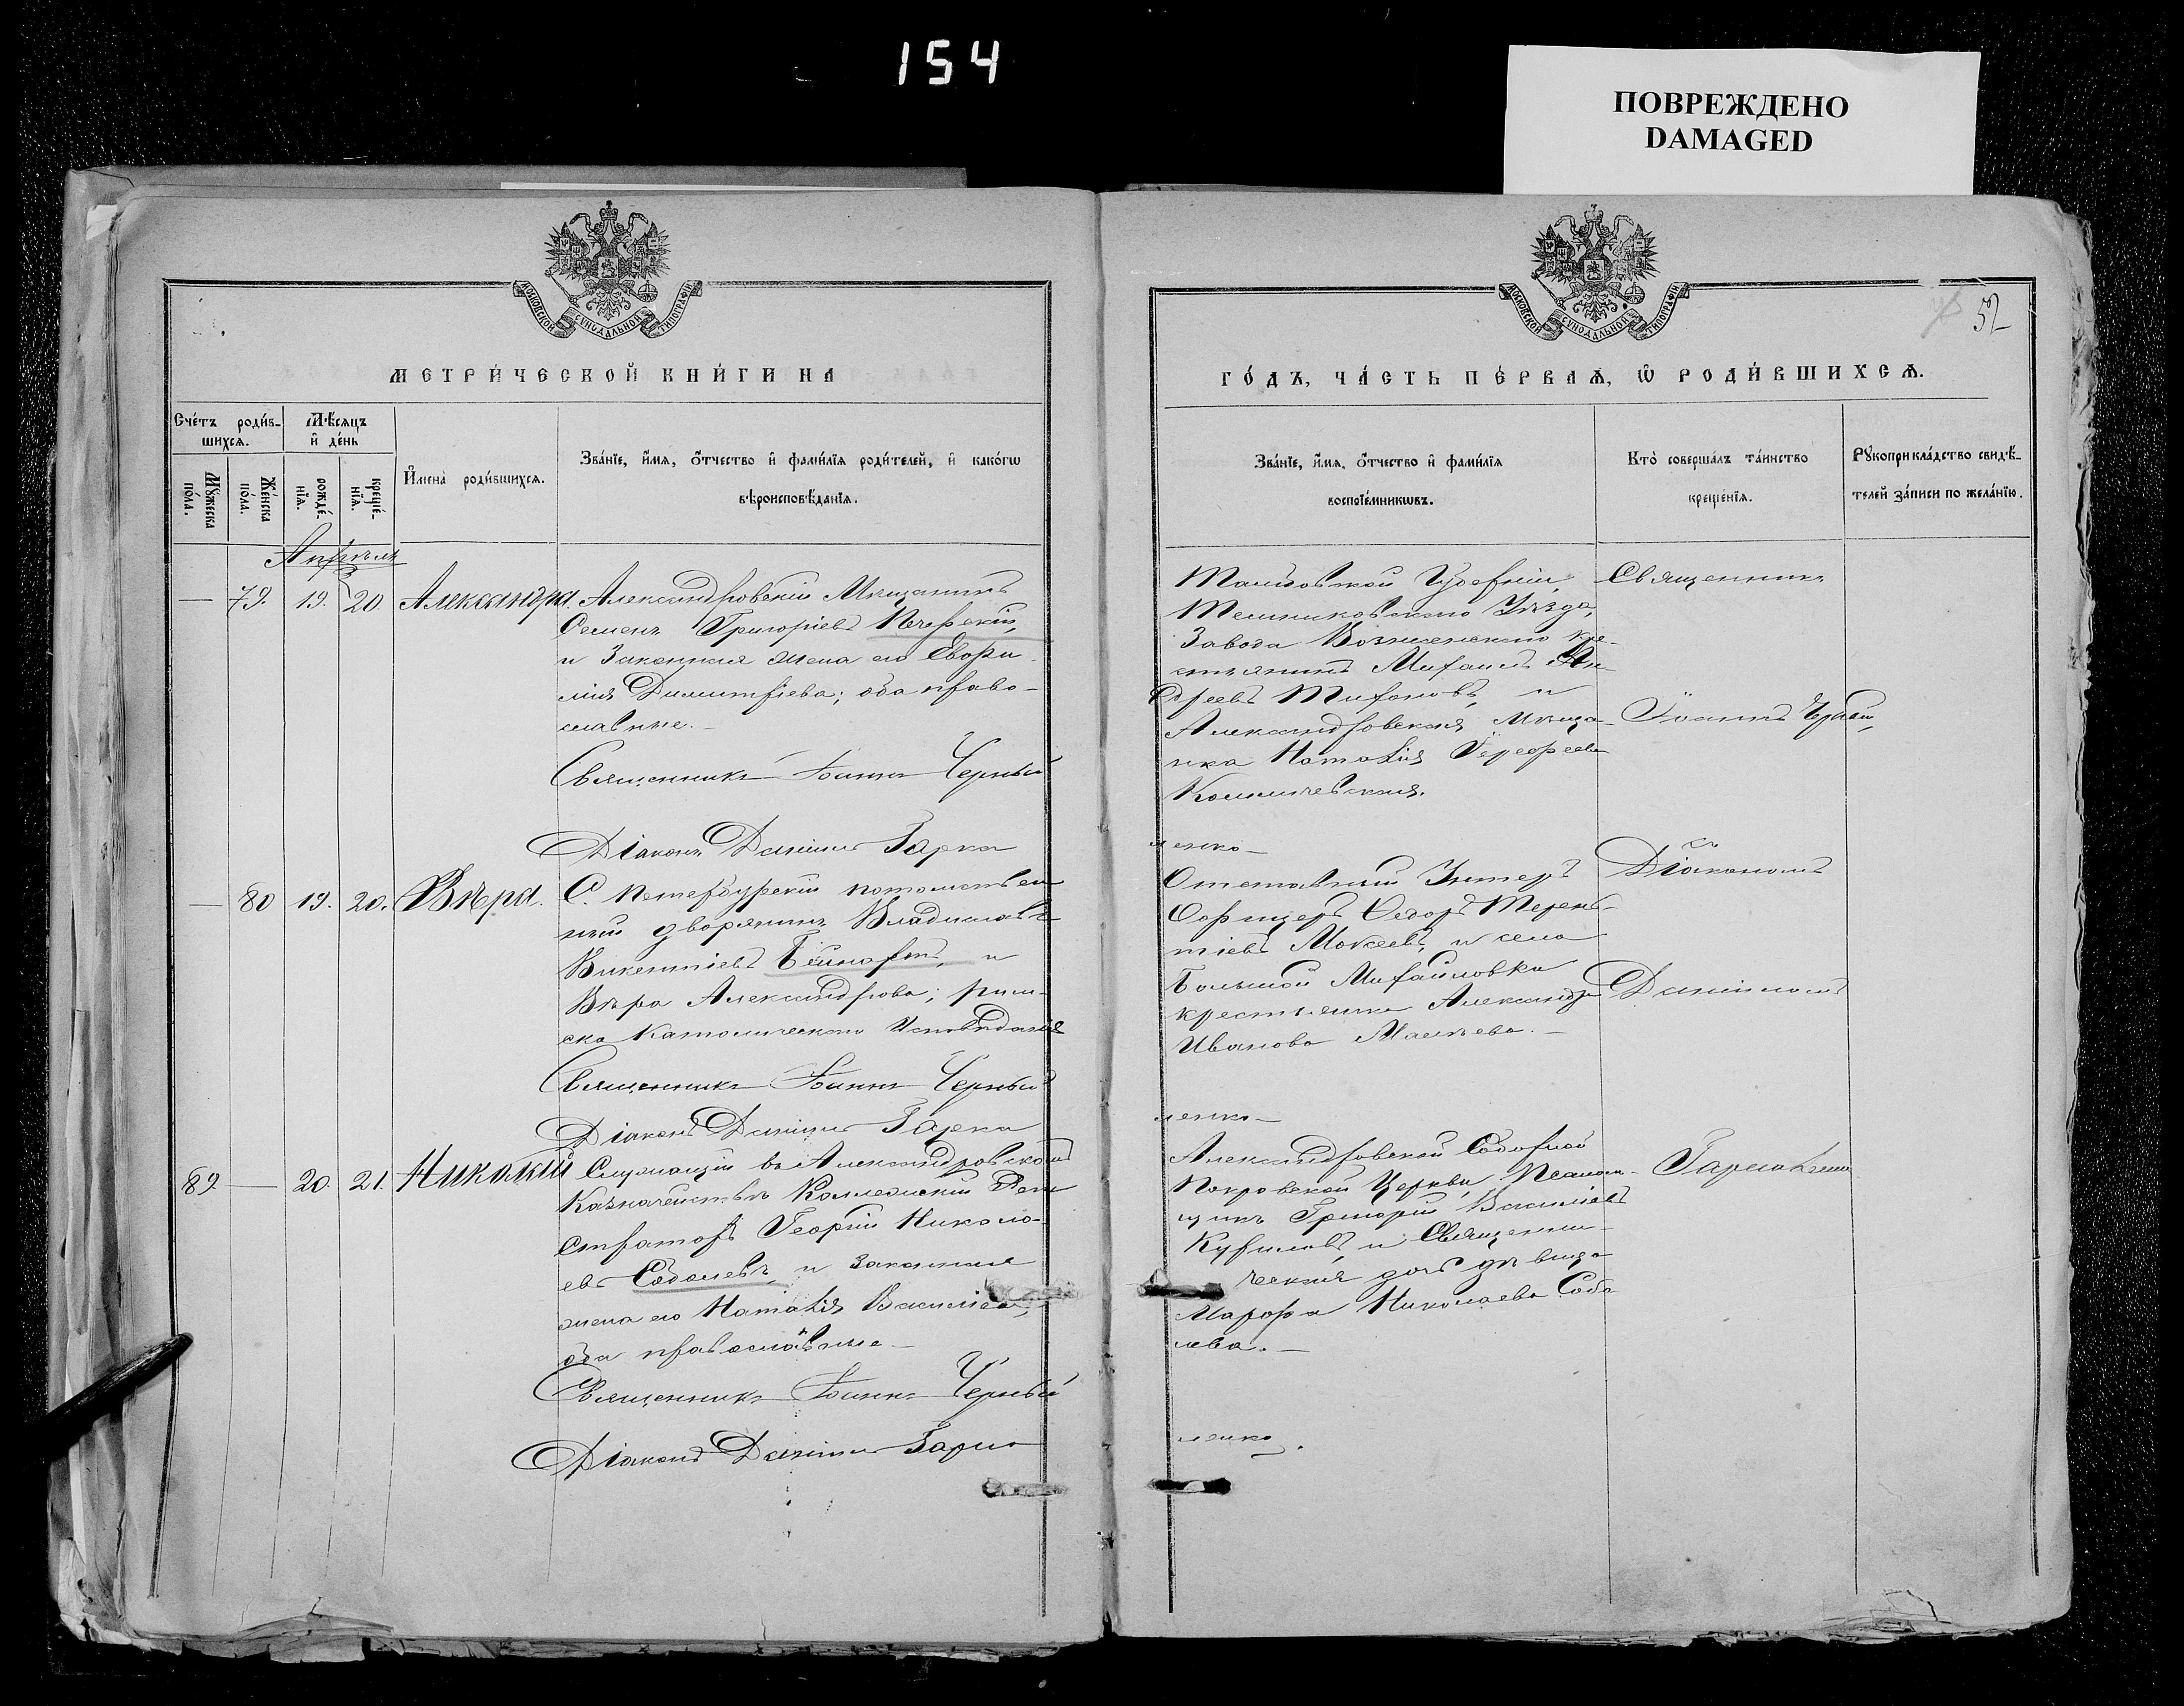 154
ПОВРЕЖДЕНО
DAMAGED
МОСКОВСКОЙ СѴНОДАЛЬНОЙ ТИПОГРАФІИ
МЕТРИ́ЧЕСКОЙ КНИ́ГИ НА
Сче́тъ роди́в-
шихсѧ.
Мѣ́сѧцъ
и҆ де́нь
Мꙋ́жеска
по́ла.
Же́нска
по́ла.
рожде́-
нїѧ.
креще́-
нїѧ.
И҆мена̀ роди́вшихсѧ.
Зва́нїе, и҆́мѧ, ѻ҆́тчество и҆ фами́лїѧ роди́телей, и҆ како́гѡ
вѣроисповѣ́данїѧ.
Апрѣль
— 79. 19. 20. Александра. Александровскій Мѣщанинъ
Семенъ Григоріевъ Печерскій,
и Законная жена его Евфи-
мія Димитріева; оба право-
славные.—
Священникъ Іоаннъ Черный
Діаконъ Даніилъ Гарма
— 80 19. 20. Вѣра. С. Петербурскій потомствен
ный дворянинъ Владиславъ
Викентіевъ Бейнартъ, и
Вѣра Александрова; рим-
ско Католическаго Исповѣданія
Священникъ Іоаннъ Черный
Діаконъ Даніилъ Гарма
89. — 20. 21. Николай Служащій въ Александровскомъ
Казначействѣ Коллежскій Реги
страторъ Георгій Никола-
евъ Соболевъ, и Законная
жена его Наталія Васильева,
оба православные—
Священникъ Іоаннъ Черный
Діаконъ Даніилъ Гарма
МОСКОВСКОЙ СѴНОДАЛЬНОЙ ТИПОГРАФІИ
52
ГО́ДЪ, ЧА́СТЬ ПЕ́РВАѦ, Ѡ҆ РОДИ́ВШИХСѦ.
Зва́нїе, и҆́мѧ, ѻ҆́тчество и҆ фами́лїѧ
воспрїе́мникѡвъ.
Кто̀ соверша́лъ та́инство
креще́нїѧ.
Рꙋкоприкла́дство свидѣ́-
телей за́писи по жела́нїю.
Тамбовской Губерніи, Священникъ
Темниковскаго Уѣзда,
Завода Вознесенскаго кре-
стьянинъ Михаилъ Ан-
дреевъ Тихоновъ, и
Александровская Мѣща- Іоаннъ Черный,
нка Наталія
ленко—
Отставный Унтеръ съ Діакономъ
Офицеръ Ѳедоръ Терен-
тіевъ Мокеевъ, и села
Большой Михайловки
крестьянка Александра Даніиломъ
Иванова
ленко—
Александровской Соборной
Покровской Церкви, Псалом- Гармаленко
щикъ Григорій Васильевъ
Куриловъ, и Священни-
ческая дочь дѣвица
Марфа Николаева Собо
лева.—
ленко.